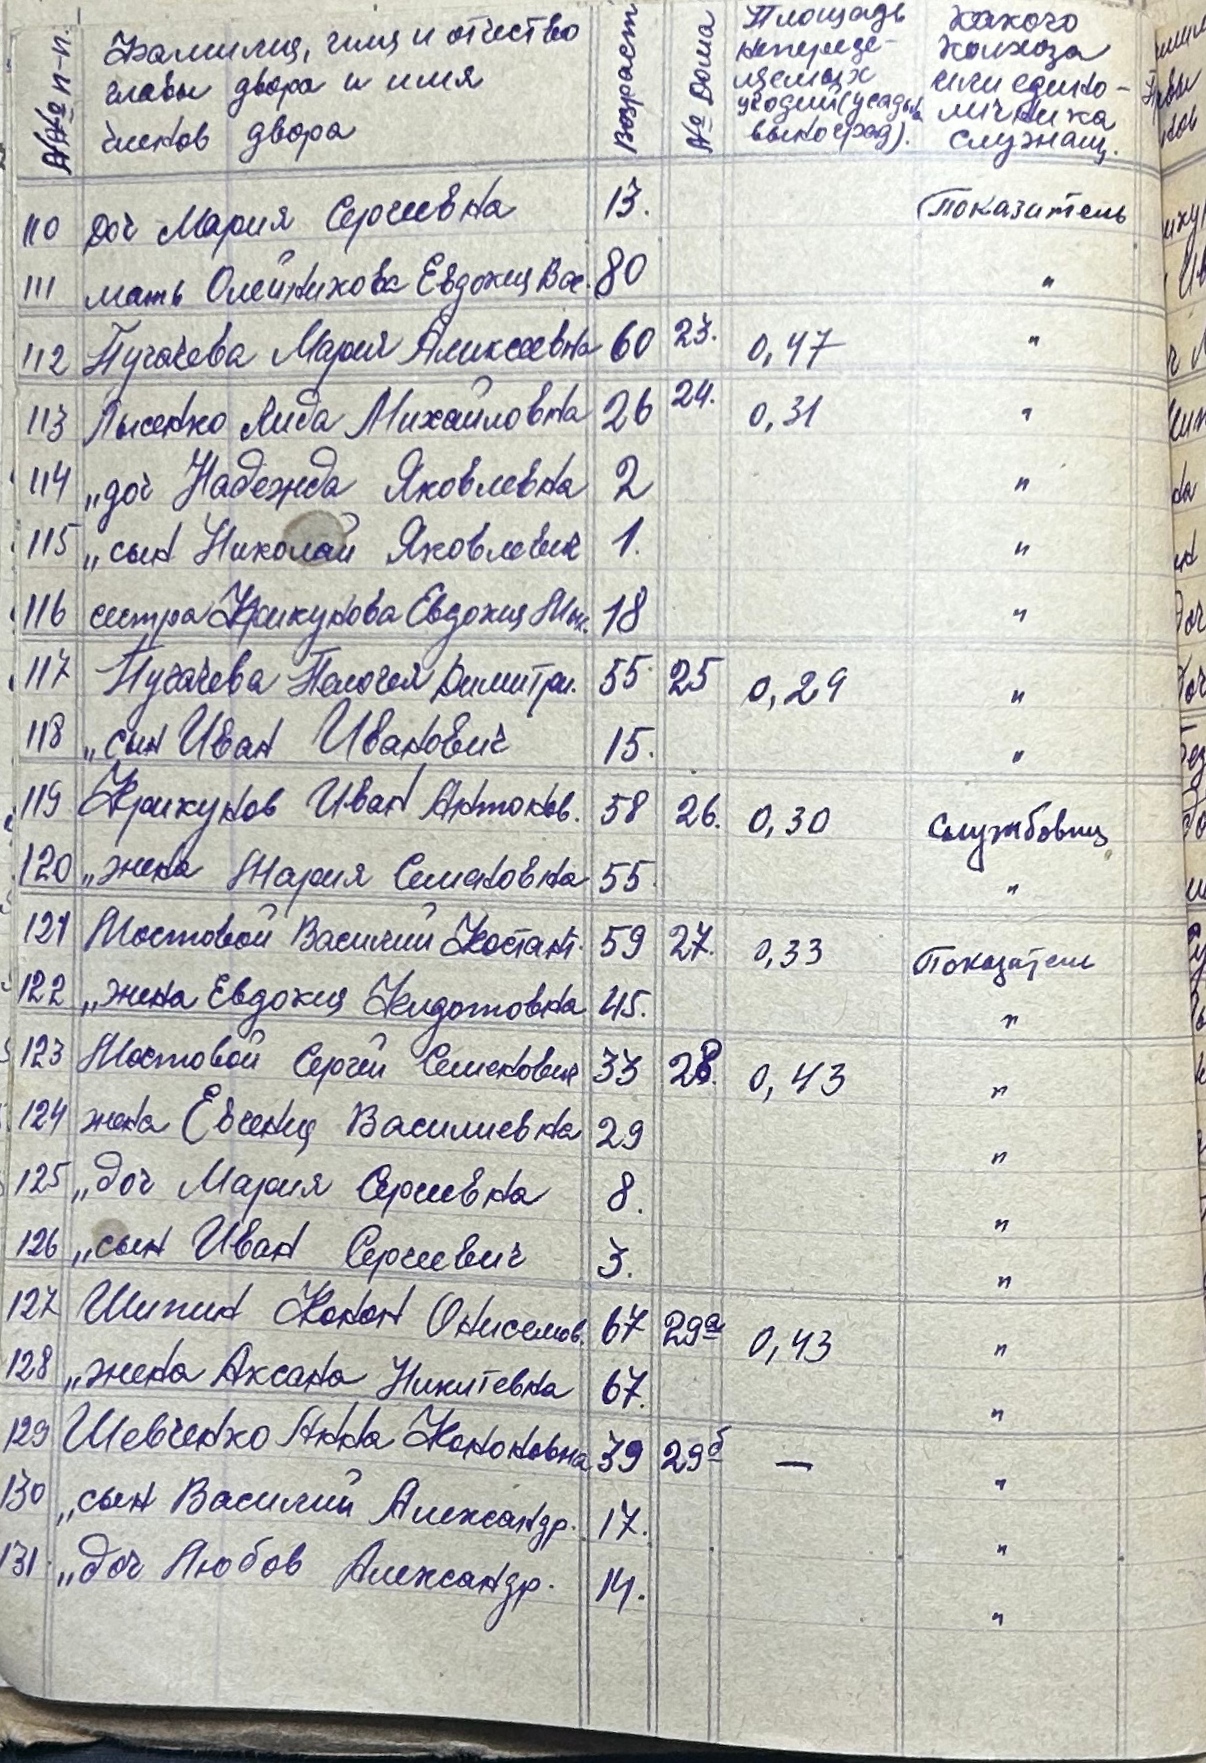 №№ п-п.
Фамилия, имя и отчество
главы двора и имя
членов двора
Возраст
№ Дома
Площадь
непереде-
ляемых
угодий (усадьба
виноград).
Какого
колхоза
или едино-
личника
служащ.
110 доч Мария Сергеевна 13. Показитель
111 мать Олейникова Евдокия Вас. 80 "
112 Пугачева Мария Аликсеевна 60 23. 0,47 "
113 Лысенко Лида Михайловна 26 24. 0,31 "
114 „доч Надежда Яковлевна 2 "
115 „сын Николай Яковлевич 1. "
116 сестра Крикунова Евдокия Мих. 18 "
117 Пугачева Пелогея Димитри. 55 25 0,29 "
118 „сын Иван Иванович 15. "
119 Крикунов Иван Антонов. 58 26. 0,30 Службовиц
120 „жена Мария Семеновна 55. "
121 Мостовой Василий Костант. 59 27. 0,33 Показатель
122 „жена Евдокия 45. "
123 Мостовой Сергей Семенович 33 28. 0,43 "
124 жена Евгения Василиевна 29 "
125 „доч Мария Сергеевна 8. "
126 „сын Иван Сергеевич 3. "
127 Шипин Конон Онисемов. 67 29а 0,43 "
128 „жена Аксана Никитевна 67. "
129 Шевченко Анна Кононовна 39 29б — "
130 „сын Василий Александр. 17. "
131 „доч Любов Александр. 14. "